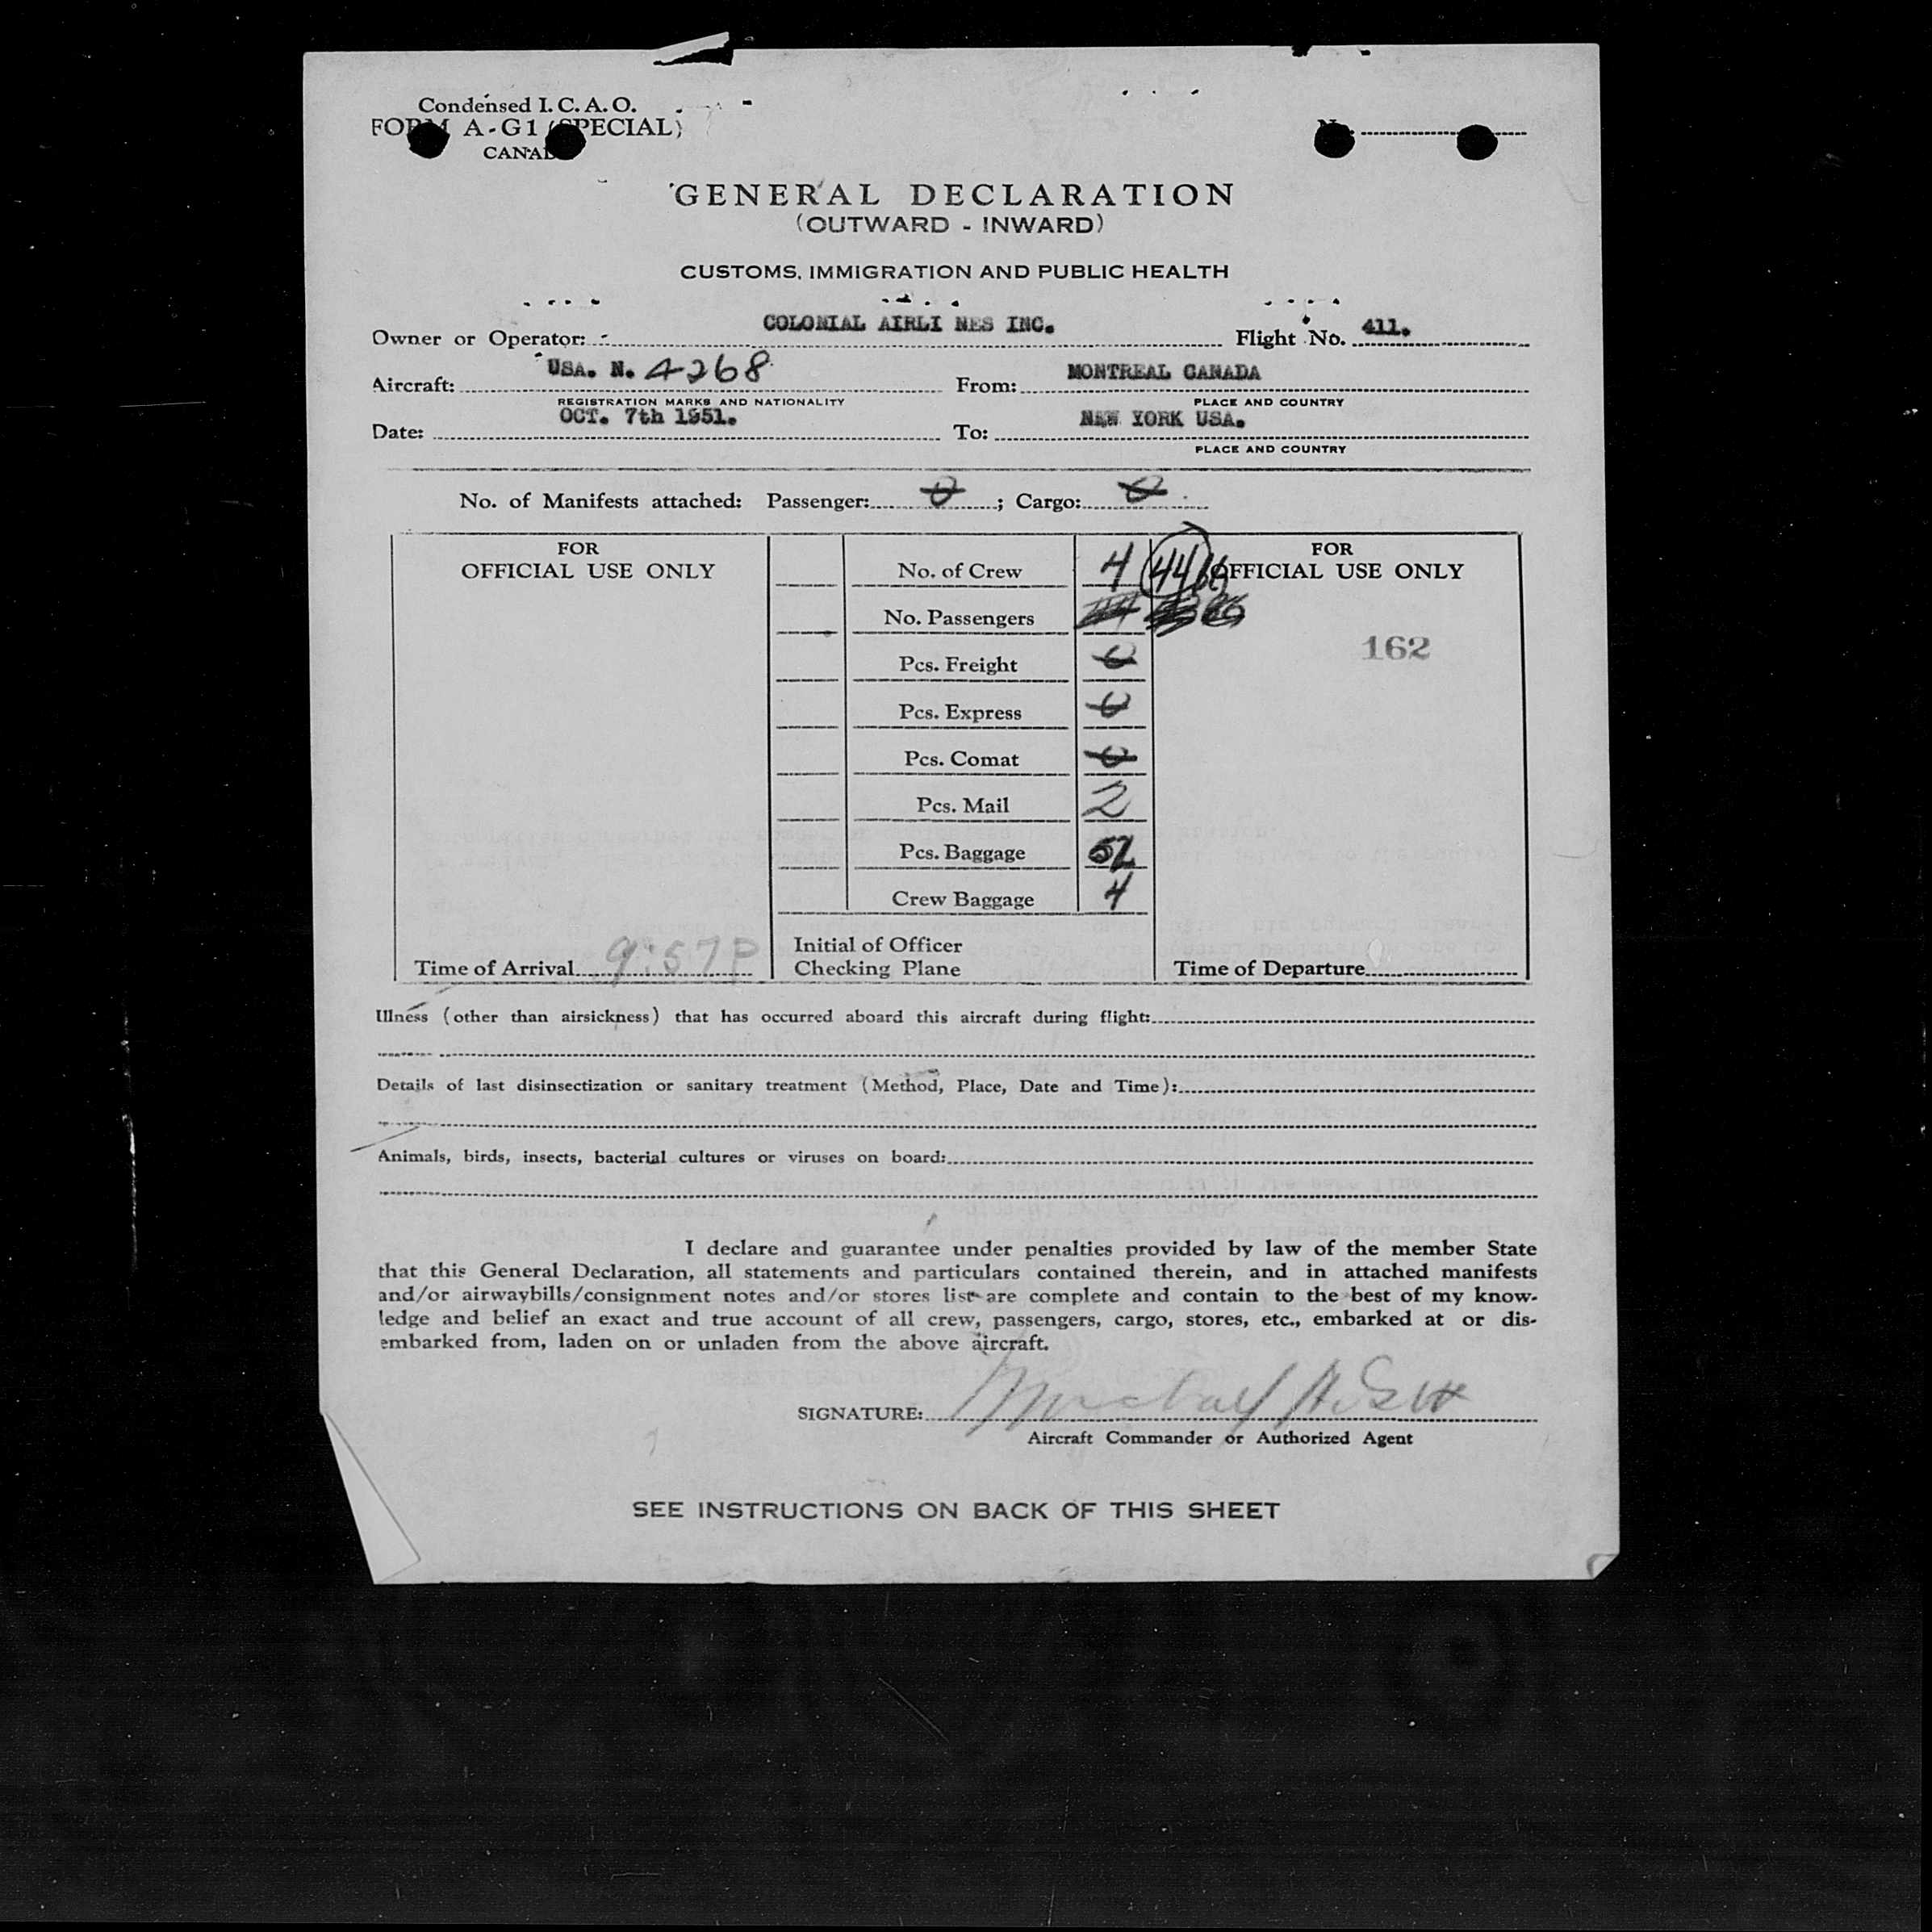 Condensed I. C. A. O.
FORM A-G1 (SPECIAL)
CANADA
GENERAL DECLARATION
(OUTWARD - INWARD)
CUSTOMS, IMMIGRATION AND PUBLIC HEALTH
Owner or Operator: COLONIAL AIRLI NES INC. Flight No. 411.
Aircraft: USA. N. 4268 From: MONTREAL CANADA
REGISTRATION MARKS AND NATIONALITY PLACE AND COUNTRY
Date: OCT. 7th 1951. To: NEW YORK USA.
PLACE AND COUNTRY
No. of Manifests attached: Passenger: 0; Cargo: 0
FOR
OFFICIAL USE ONLY
No. of Crew 4 44
No. Passengers
Pcs. Freight 0
Pcs. Express 0
Pcs. Comat 0
Pcs. Mail 2
Pcs. Baggage 52
Crew Baggage 4
FOR
OFFICIAL USE ONLY
162
Time of Arrival 9:57P
Initial of Officer
Checking Plane
Time of Departure
Illness (other than airsickness) that has occurred aboard this aircraft during flight:
Details of last disinsectization or sanitary treatment (Method, Place, Date and Time):
Animals, birds, insects, bacterial cultures or viruses on board:
I declare and guarantee under penalties provided by law of the member State
that this General Declaration, all statements and particulars contained therein, and in attached manifests
and/or airwaybills/consignment notes and/or stores list are complete and contain to the best of my know-
ledge and belief an exact and true account of all crew, passengers, cargo, stores, etc., embarked at or dis-
embarked from, laden on or unladen from the above aircraft.
SIGNATURE:
Aircraft Commander or Authorized Agent
SEE INSTRUCTIONS ON BACK OF THIS SHEET